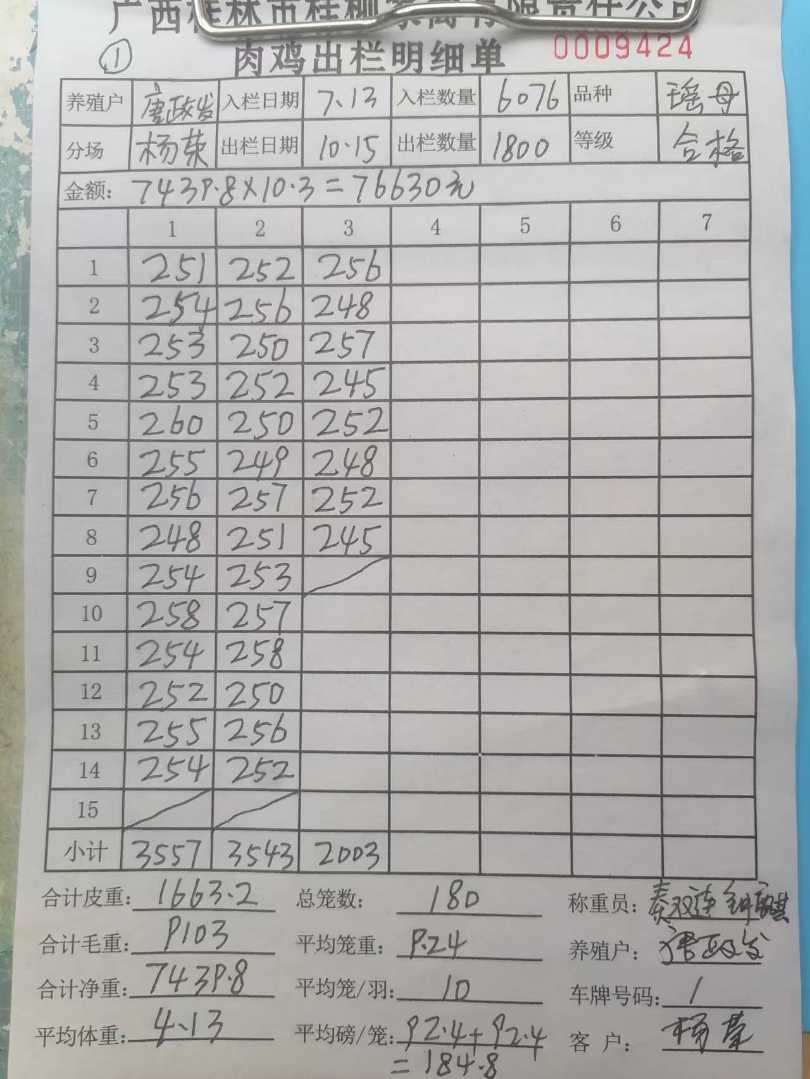 广西桂林市桂柳家禽有限责任公司
① 肉鸡出栏明细单 0009424
养殖户 唐政发 入栏日期 7.13 入栏数量 6076 品种 瑶母
分场 杨荣 出栏日期 10.15 出栏数量 1800 等级 合格
金额: 7439.8×10.3=76630元
1 2 3 4 5 6 7
1 251 252 256
2 254 256 248
3 253 250 257
4 253 252 245
5 260 250 252
6 255 249 248
7 256 257 252
8 248 251 245
9 254 253
10 258 257
11 254 258
12 252 250
13 255 256
14 254 252
15
小计 3557 3543 2003
合计皮重: 1663.2 总笼数: 180 称重员:
合计毛重: 9103 平均笼重: 9.24 养殖户: 唐政发
合计净重: 7439.8 平均笼/羽: 10 车牌号码: 1
平均体重: 4.13 平均磅/笼: 92.4+92.4 客户: 杨荣
=184.8